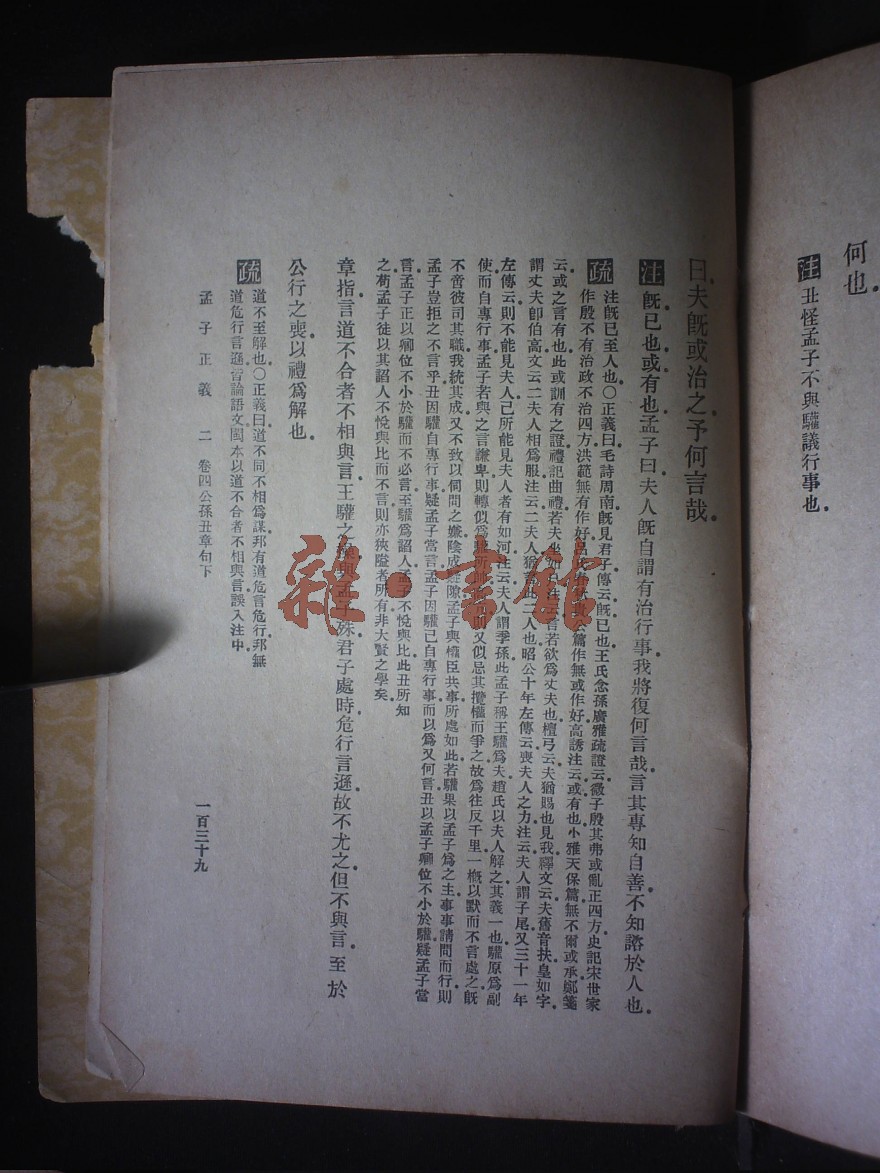 何也。
注 丑怪孟子不與驩議行事也。
曰夫既或治之予何言哉。
注 既已也或有也孟子曰夫人既自謂有治行事我將復何言哉言其專知自善不知諮於人也。
疏 注既已至人也〇正義曰毛詩周南既見君子傳云既已也王氏念孫廣雅疏證云微子殷其弗或亂正四方史記宋世家
作殷不有治政不治四方洪範無有作好
篇作無或作好高誘注云或有也小雅天保篇無不爾或承鄭箋
云或之言有也此或訓有之證禮記曲禮若夫坐如尸注云言若欲爲丈夫也檀弓云夫猶賜也見我釋文云夫舊音扶皇如字
謂丈夫卽伯高文云二夫人相爲服注云二夫人猶言此二人也昭公十年左傳云喪夫人之力注云夫人謂子尾又三十一年
左傳云則不能見夫人己所能見夫人者有如河注云夫人謂季孫此孟子稱王驩爲夫趙氏以夫人解之其義一也驩原爲副
使而自專行事孟子若與之言謙卑則轉似爲驩所
則又似忌其攬權而爭之故爲往反千里一槪以默而不言處之既
不嗇彼司其職我統其成又不致以伺問之嫌陰成疑隙孟子與權臣共事所處如此若驩果以孟子爲之主事事請問而行則
孟子豈拒之不言乎丑因驩自專行事疑孟子當言孟子因驩已自專行事而以爲又何言丑以孟子卿位不小於驩疑孟子當
言孟子正以卿位不小於驩而不必言至驩爲諂人孟子不悅與比此丑所知
之苟孟子徒以其諂人不悅與比而不言則亦狹隘者所有非大賢之學矣
章指言道不合者不相與言王驩之操與孟子殊君子處時危行言遜故不尤之但不與言至於
公行之喪以禮爲解也。
疏 道不至解也〇正義曰道不同不相爲謀邦有道危言危行邦無
道危行言遜皆論語文閩本以道不合者不相與言誤入注中。
孟子正義 二 卷四公孫丑章句下
一百三十九
雜·書館